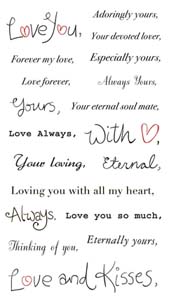 Love You,
Adoringly yours,
Your devoted lover,
Forever my love,
Especially yours,
Love forever,
Always Yours,
Yours,
Your eternal soul mate,
Love Always,
With ♡,
Your loving,
Eternal,
Loving you with all my heart,
Always,
Love you so much,
Thinking of you,
Eternally yours,
Love and Kisses,